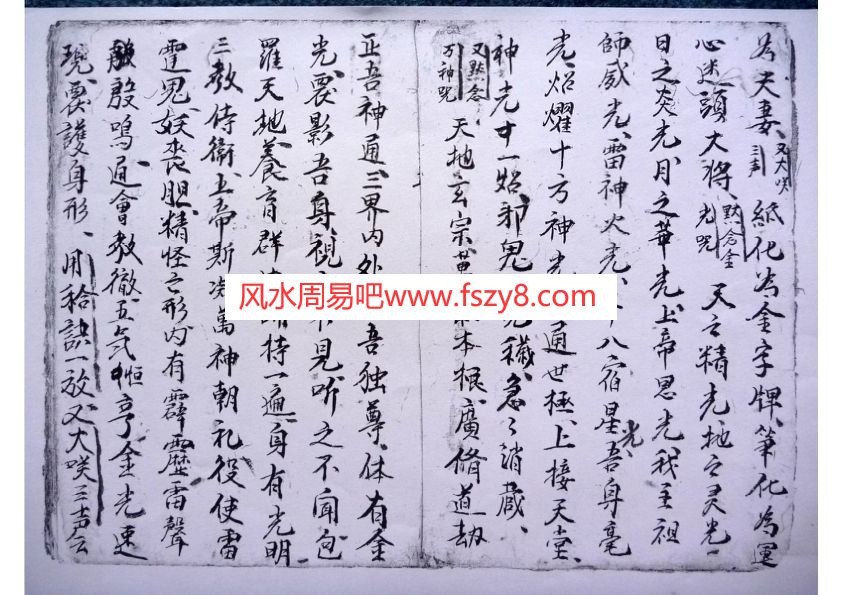 為夫妻、又大咲三声紙化為金字牌、筆化為軍
心迷頭大將、默念金光咒天之精光地之灵光一
日之炎光月之華光上帝恩光我主祖
師威光、雷神火光、八宿星光吾身毫
光焰耀十方神光通世極、上接天堂、
神光才一焰邪鬼穢急々消蔵、
又默念万神咒天地玄宗本根廣脩道劫
正吾神通三界內外吾独尊体有金
光裹影吾身視不見听之不聞包
羅天地養育群持一遍身有光明
三教侍衛上帝斯萬神朝礼役使雷
霆鬼妖喪胆精怪亡形內有霹靂雷聲
殷鳴通會教徹五气恒亨金光速
現裹護身形、用訣一放又大咲三声云
风水周易吧www.fszy8.com